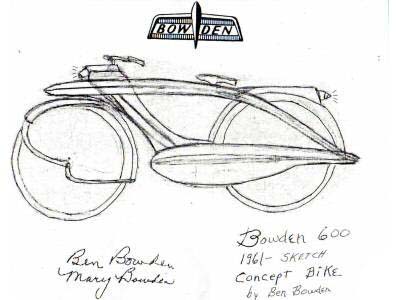 BOWDEN
Ben Bowden
Mary Bowden
Bowden 600
1961- SKETCH
Concept Bike
by Ben Bowden